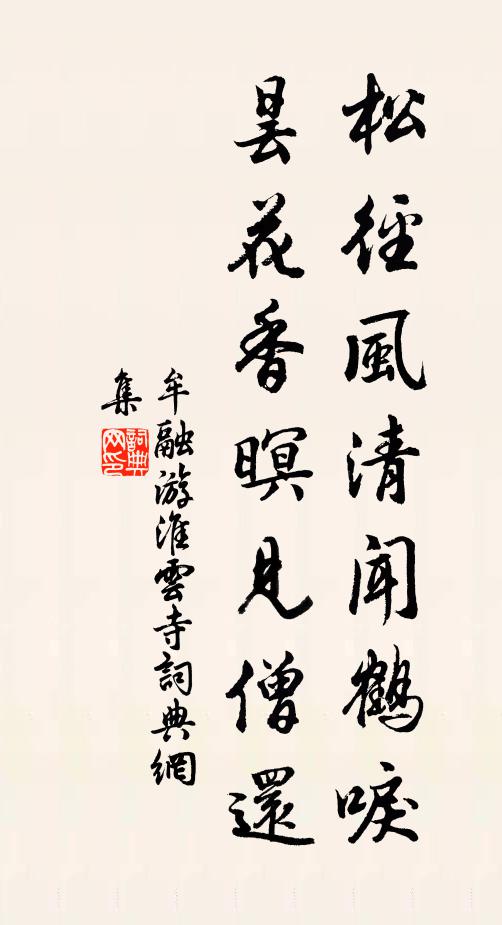 松徑風清聞鶴唳
曇花香暝見僧還
牟融游淮雲寺詞典網
集
詞典
网印